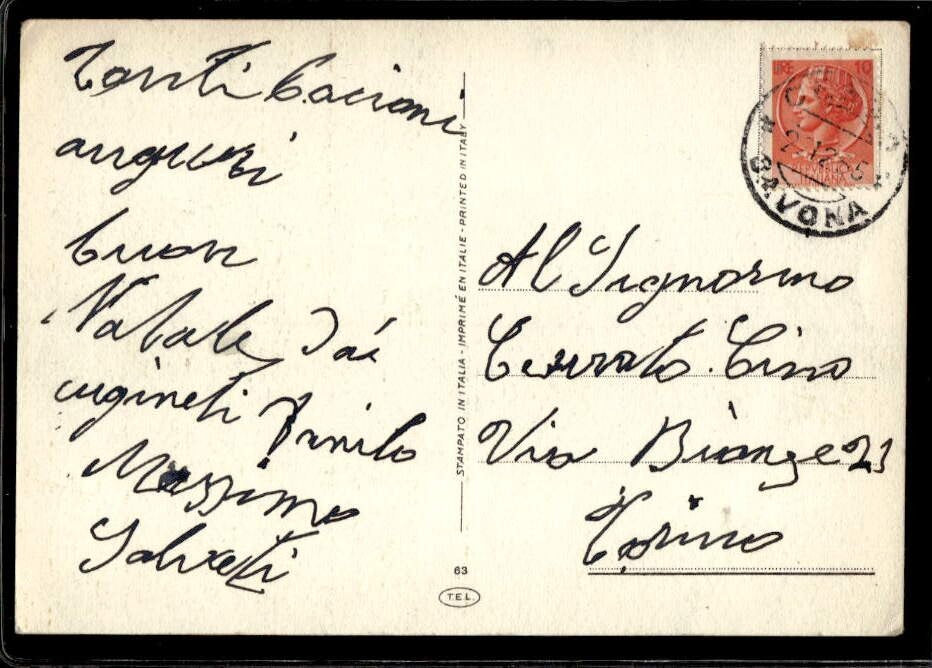 Tanti Bacioni
anguri
buon
Natale Dai
cugineti Danilo
Massimo
Salvetti
STAMPATO IN ITALIA - IMPRIMÉ EN ITALIE - PRINTED IN ITALY
63
T.E.L.
LIRE 10
SAVONA
Al Signorino
Cerrato Cino
Via
Torino